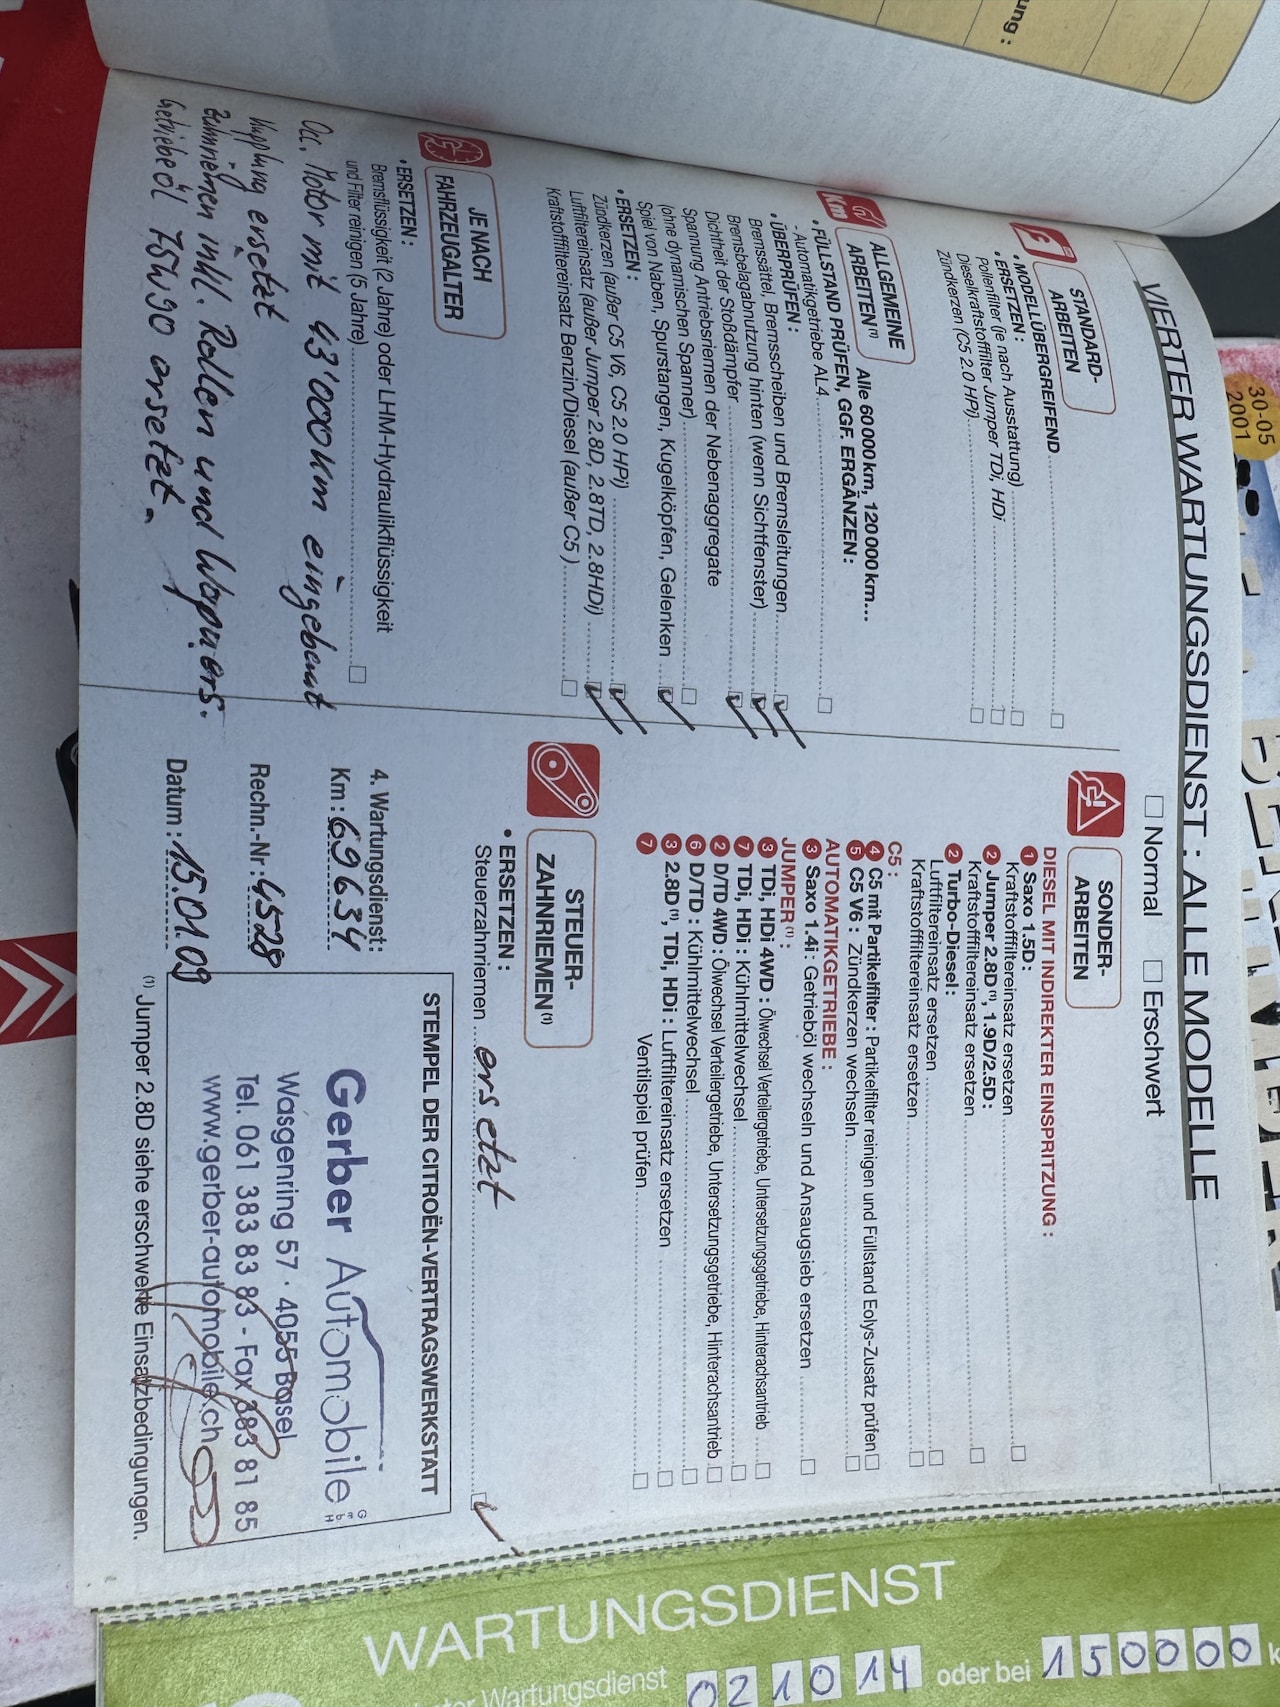 ung :
30-05
2001
VIERTER WARTUNGSDIENST : ALLE MODELLE
Normal Erschwert
STANDARD-
ARBEITEN
• MODELLÜBERGREIFEND
• ERSETZEN :
Pollenfilter (je nach Ausstattung)
Dieselkraftstofffilter Jumper TDi, HDi
Zündkerzen (C5 2.0 HPi)
Km
ALLGEMEINE
ARBEITEN(1)
Alle 60 000 km, 120 000 km...
• FÜLLSTAND PRÜFEN, GGF. ERGÄNZEN :
- Automatikgetriebe AL4
• ÜBERPRÜFEN :
Bremssättel, Bremsscheiben und Bremsleitungen
Bremsbelagabnutzung hinten (wenn Sichtfenster)
Dichtheit der Stoßdämpfer
Spannung Antriebsriemen der Nebenaggregate
(ohne dynamischen Spanner)
Spiel von Naben, Spurstangen, Kugelköpfen, Gelenken
• ERSETZEN :
Zündkerzen (außer C5 V6, C5 2.0 HPi)
Luftfiltereinsatz (außer Jumper 2.8D, 2.8TD, 2.8HDi)
Kraftstofffiltereinsatz Benzin/Diesel (außer C5 )
JE NACH
FAHRZEUGALTER
• ERSETZEN :
Bremsflüssigkeit (2 Jahre) oder LHM-Hydraulikflüssigkeit
und Filter reinigen (5 Jahre)
Occ. Motor mit 43'000km eingebaut
Kupplung ersetzt
Zahnriemen inkl. Rollen und Wapu ers.
Getriebeöl 75W90 ersetzt.
SONDER-
ARBEITEN
DIESEL MIT INDIREKTER EINSPRITZUNG :
1 Saxo 1.5D :
Kraftstofffiltereinsatz ersetzen
2 Jumper 2.8D (1), 1.9D/2.5D :
Kraftstofffiltereinsatz ersetzen
2 Turbo-Diesel :
Luftfiltereinsatz ersetzen
Kraftstofffiltereinsatz ersetzen
C5 :
4 C5 mit Partikelfilter : Partikelfilter reinigen und Füllstand Eolys-Zusatz prüfen
5 C5 V6 : Zündkerzen wechseln
AUTOMATIKGETRIEBE :
3 Saxo 1.4i : Getrieböl wechseln und Ansaugsieb ersetzen
JUMPER (1) :
3 TDi, HDi 4WD : Ölwechsel Verteilergetriebe, Untersetzungsgetriebe, Hinterachsantrieb
7 TDi, HDi : Kühlmittelwechsel
2 D/TD 4WD : Ölwechsel Verteilergetriebe, Untersetzungsgetriebe, Hinterachsantrieb
6 D/TD : Kühlmittelwechsel
3 2.8D (1), TDi, HDi : Luftfiltereinsatz ersetzen
7 Ventilspiel prüfen
STEUER-
ZAHNRIEMEN(1)
• ERSETZEN :
Steuerzahnriemen ersetzt
4. Wartungsdienst:
Km : 69634
Rechn.-Nr : 4528
Datum : 15.01.09
STEMPEL DER CITROËN-VERTRAGSWERKSTATT
Gerber Automobile GmbH
Wasgenring 57 · 4055 Basel
Tel. 061 383 83 83 - Fax 383 81 85
www.gerber-automobile.ch
(1) Jumper 2.8D siehe erschwerte Einsatzbedingungen.
WARTUNGSDIENST
Wartungsdienst 021014 oder bei 150000 k